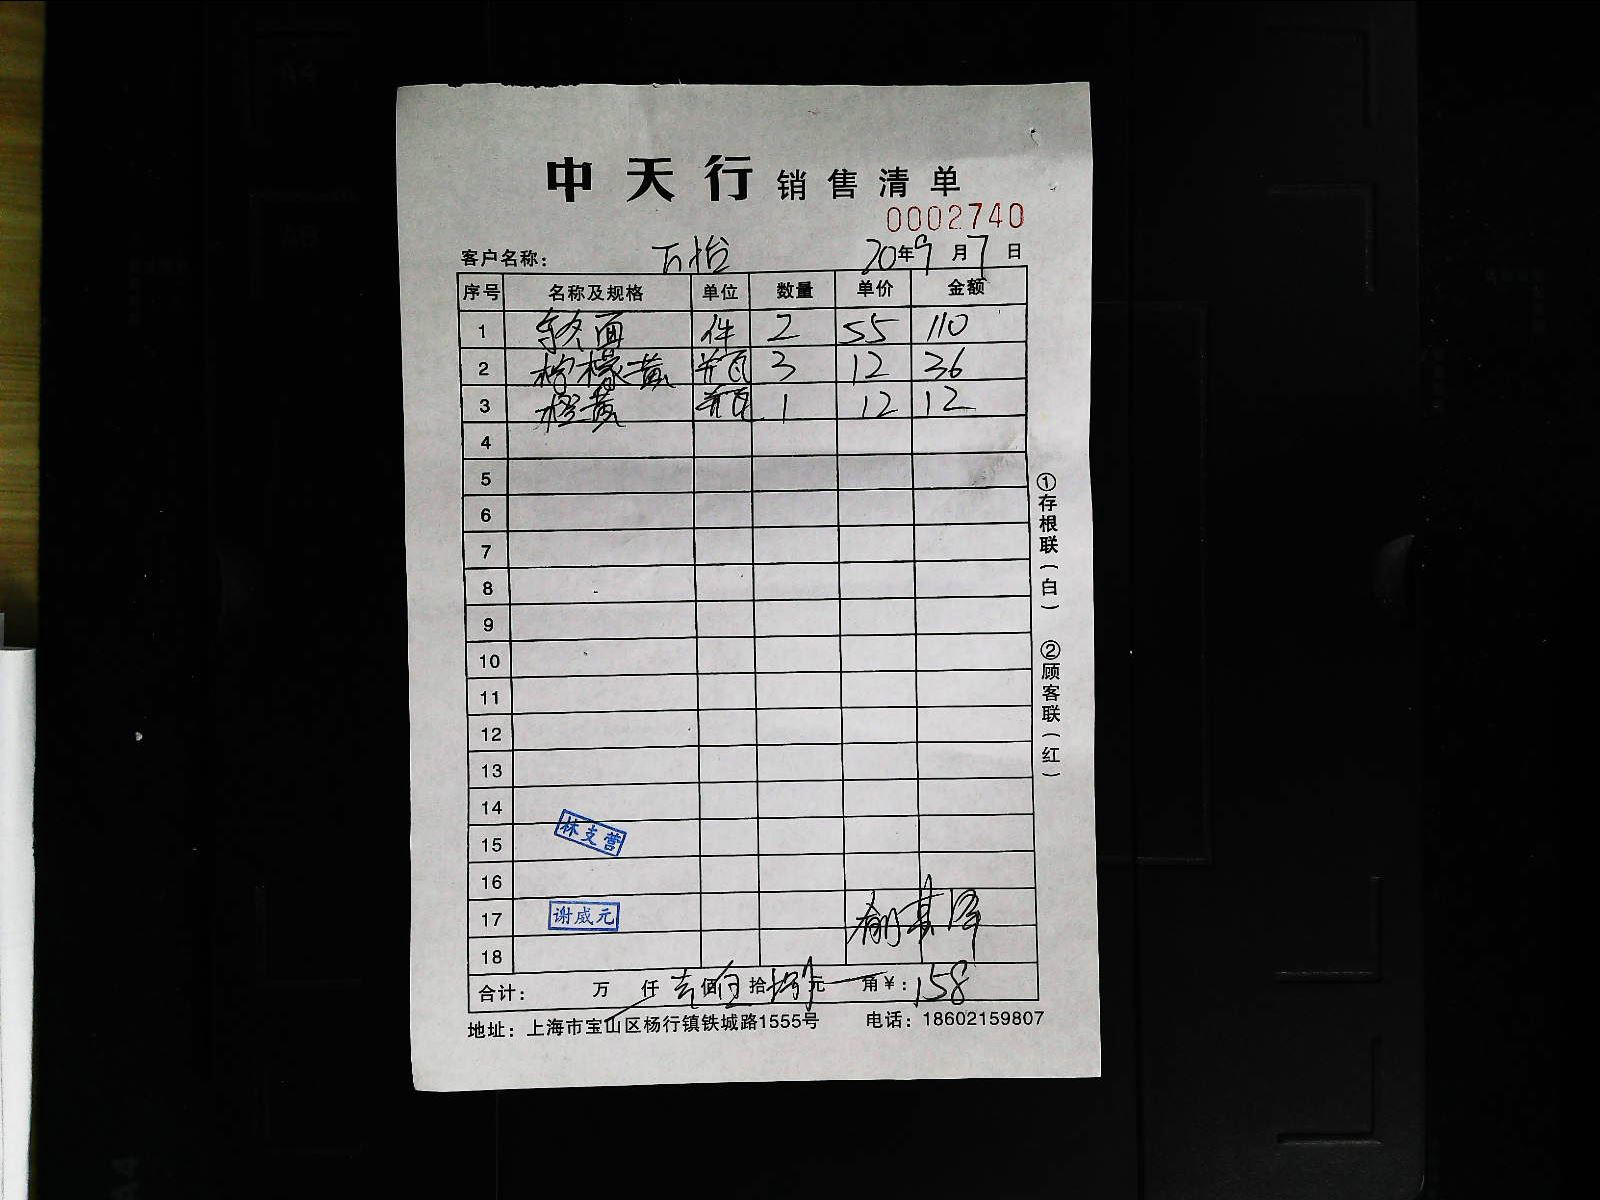 中天行 销售清单
0002740
客户名称： 万怡 20年9月7日
序号 名称及规格 单位 数量 单价 金额
1 面 件 2 55 110
2 柠檬黄 瓶 3 12 36
3 橙黄 瓶 1 12 12
4
5
6
7
8
9
10
11
12
13
14
15 林支营
16
17 谢威元
18
合计： 万 仟 壹佰 拾 元 角￥：158
地址：上海市宝山区杨行镇铁城路1555号 电话：18602159807
①存根联（白） ②顾客联（红）